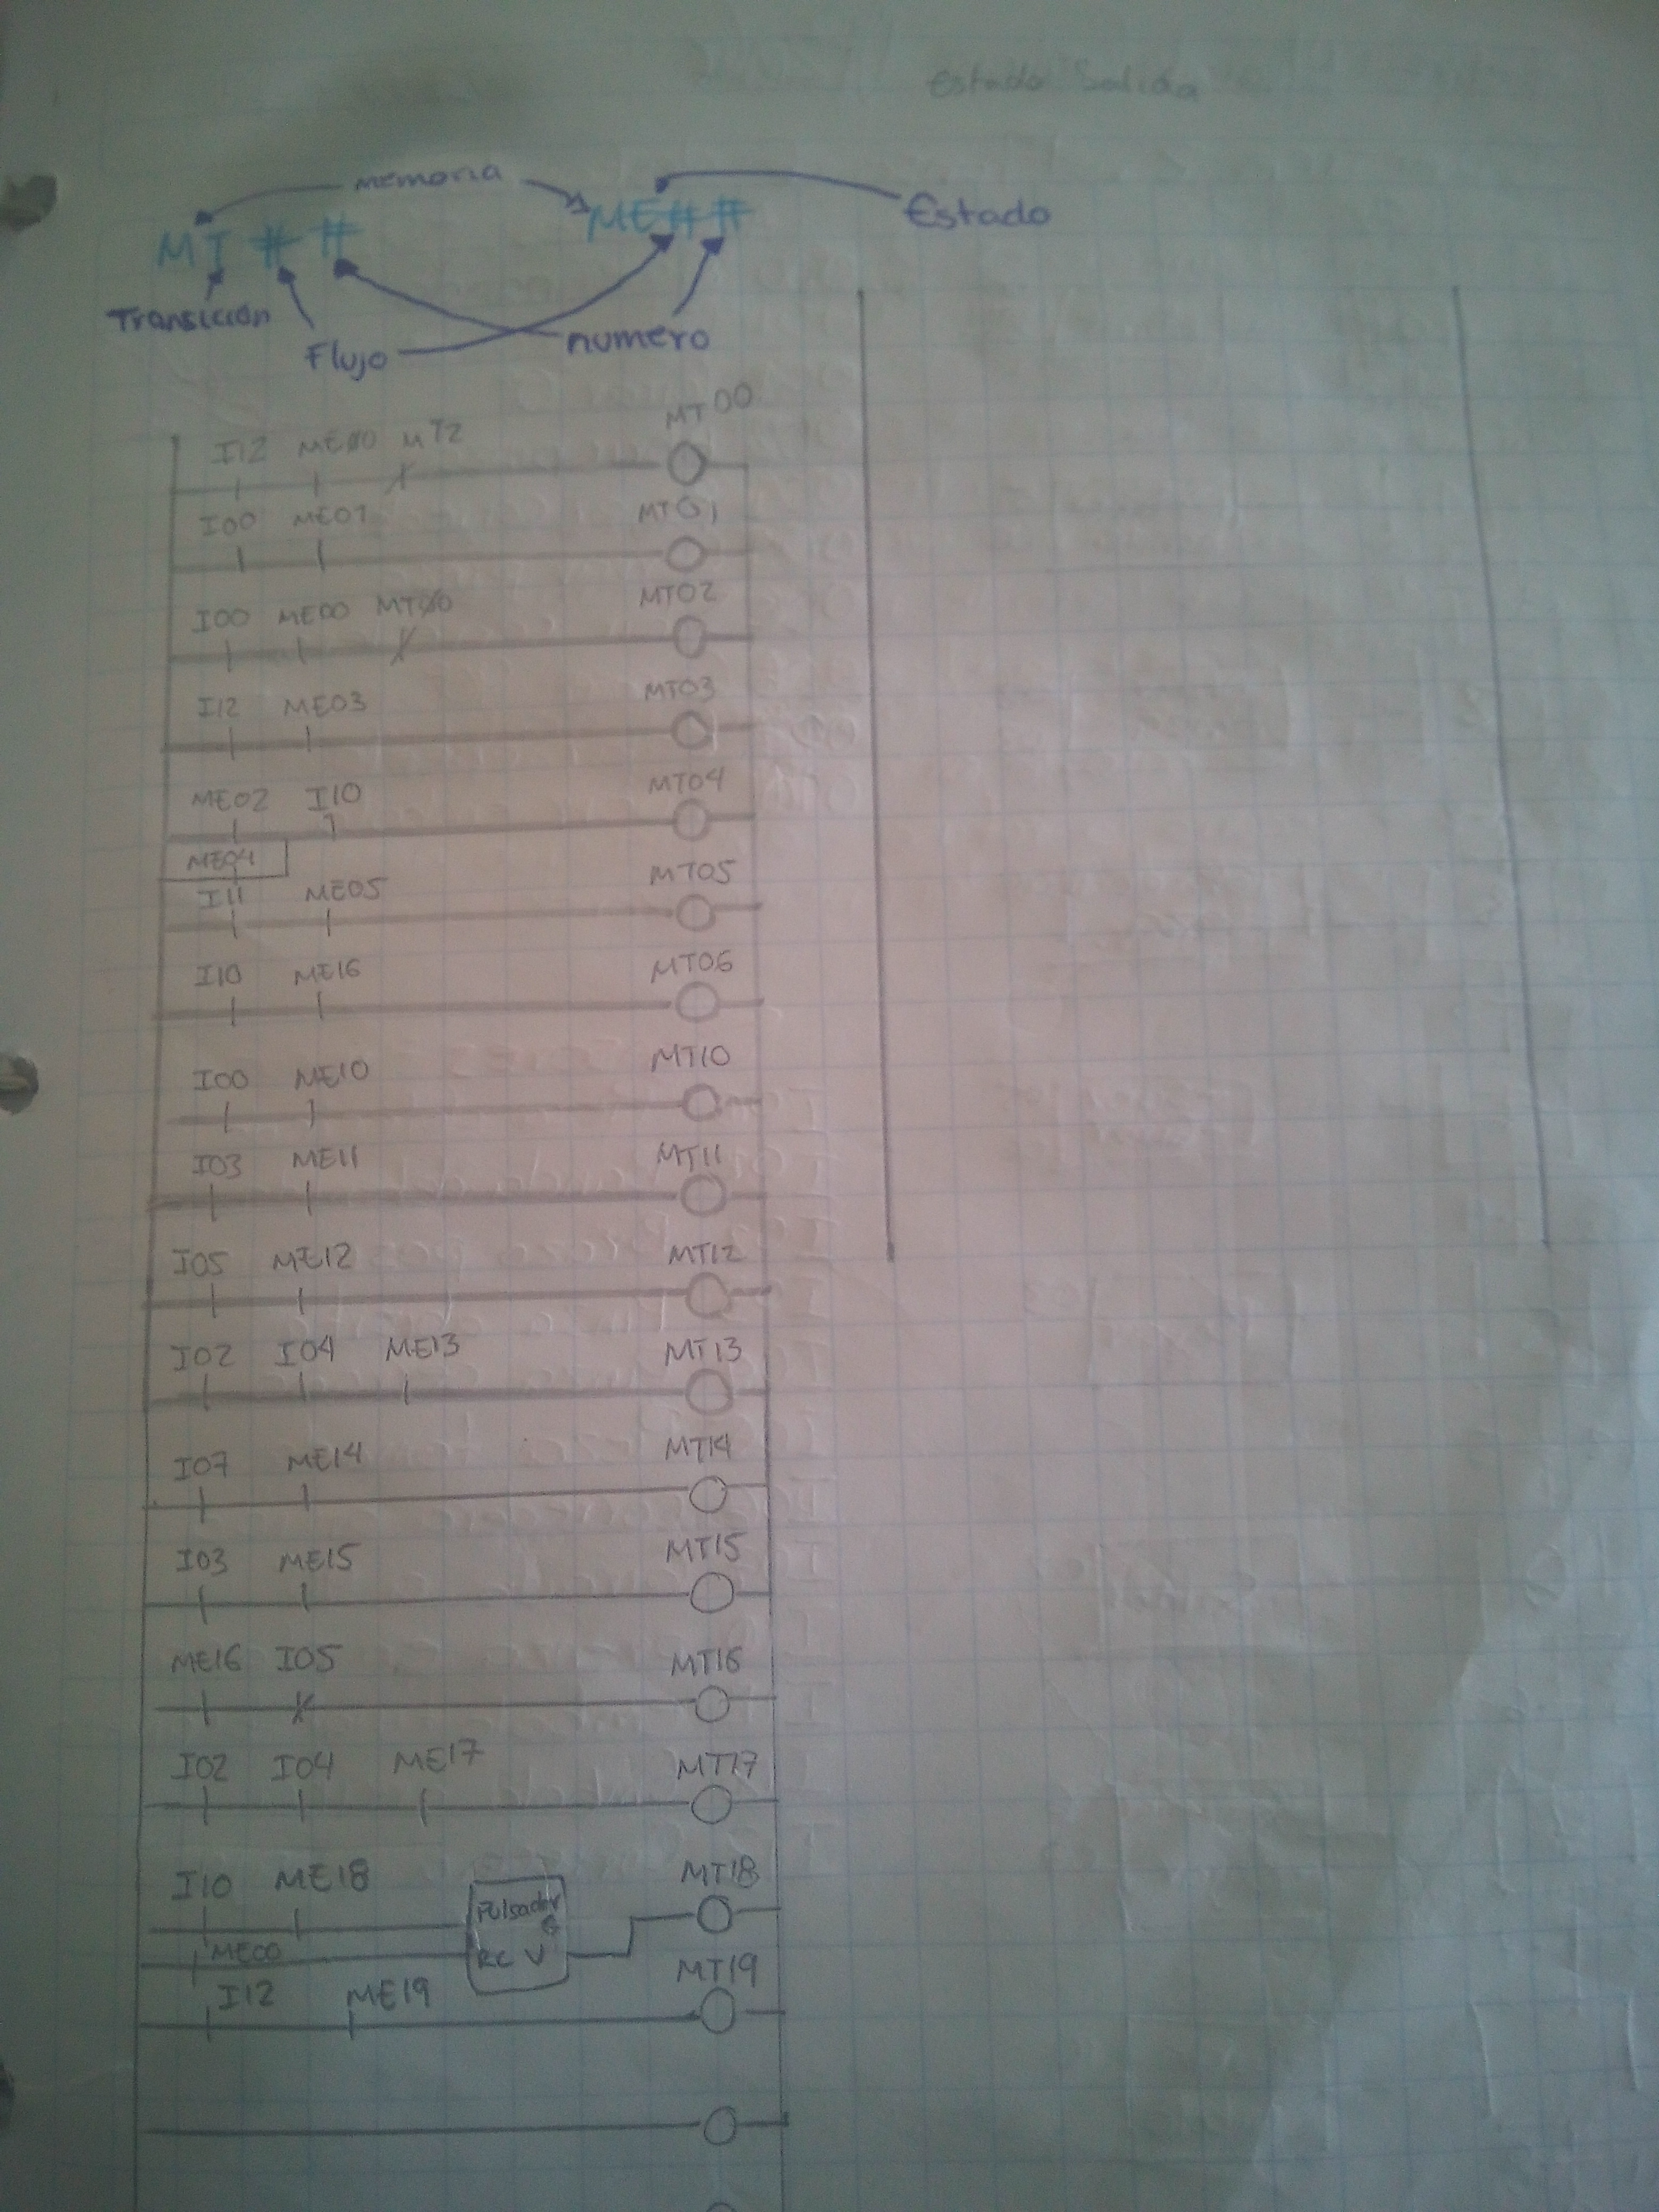 Estado Salida
memoria
MT # # ME # # Estado
Transición
Flujo numero
I12 ME00 MT2 MT00
I00 ME01 MT01
I00 ME00 MT00 MT02
I12 ME03 MT03
ME02 I10 MT04
ME04
I11 ME05 MT05
I10 ME16 MT06
I00 ME10 MT10
I03 ME11 MT11
I05 ME12 MT12
I02 I04 ME13 MT13
I07 ME14 MT14
I03 ME15 MT15
ME16 I05 MT16
I02 I04 ME17 MT17
I10 ME18 Pulsador MT18
G
ME00 RC V
I12 ME19 MT19